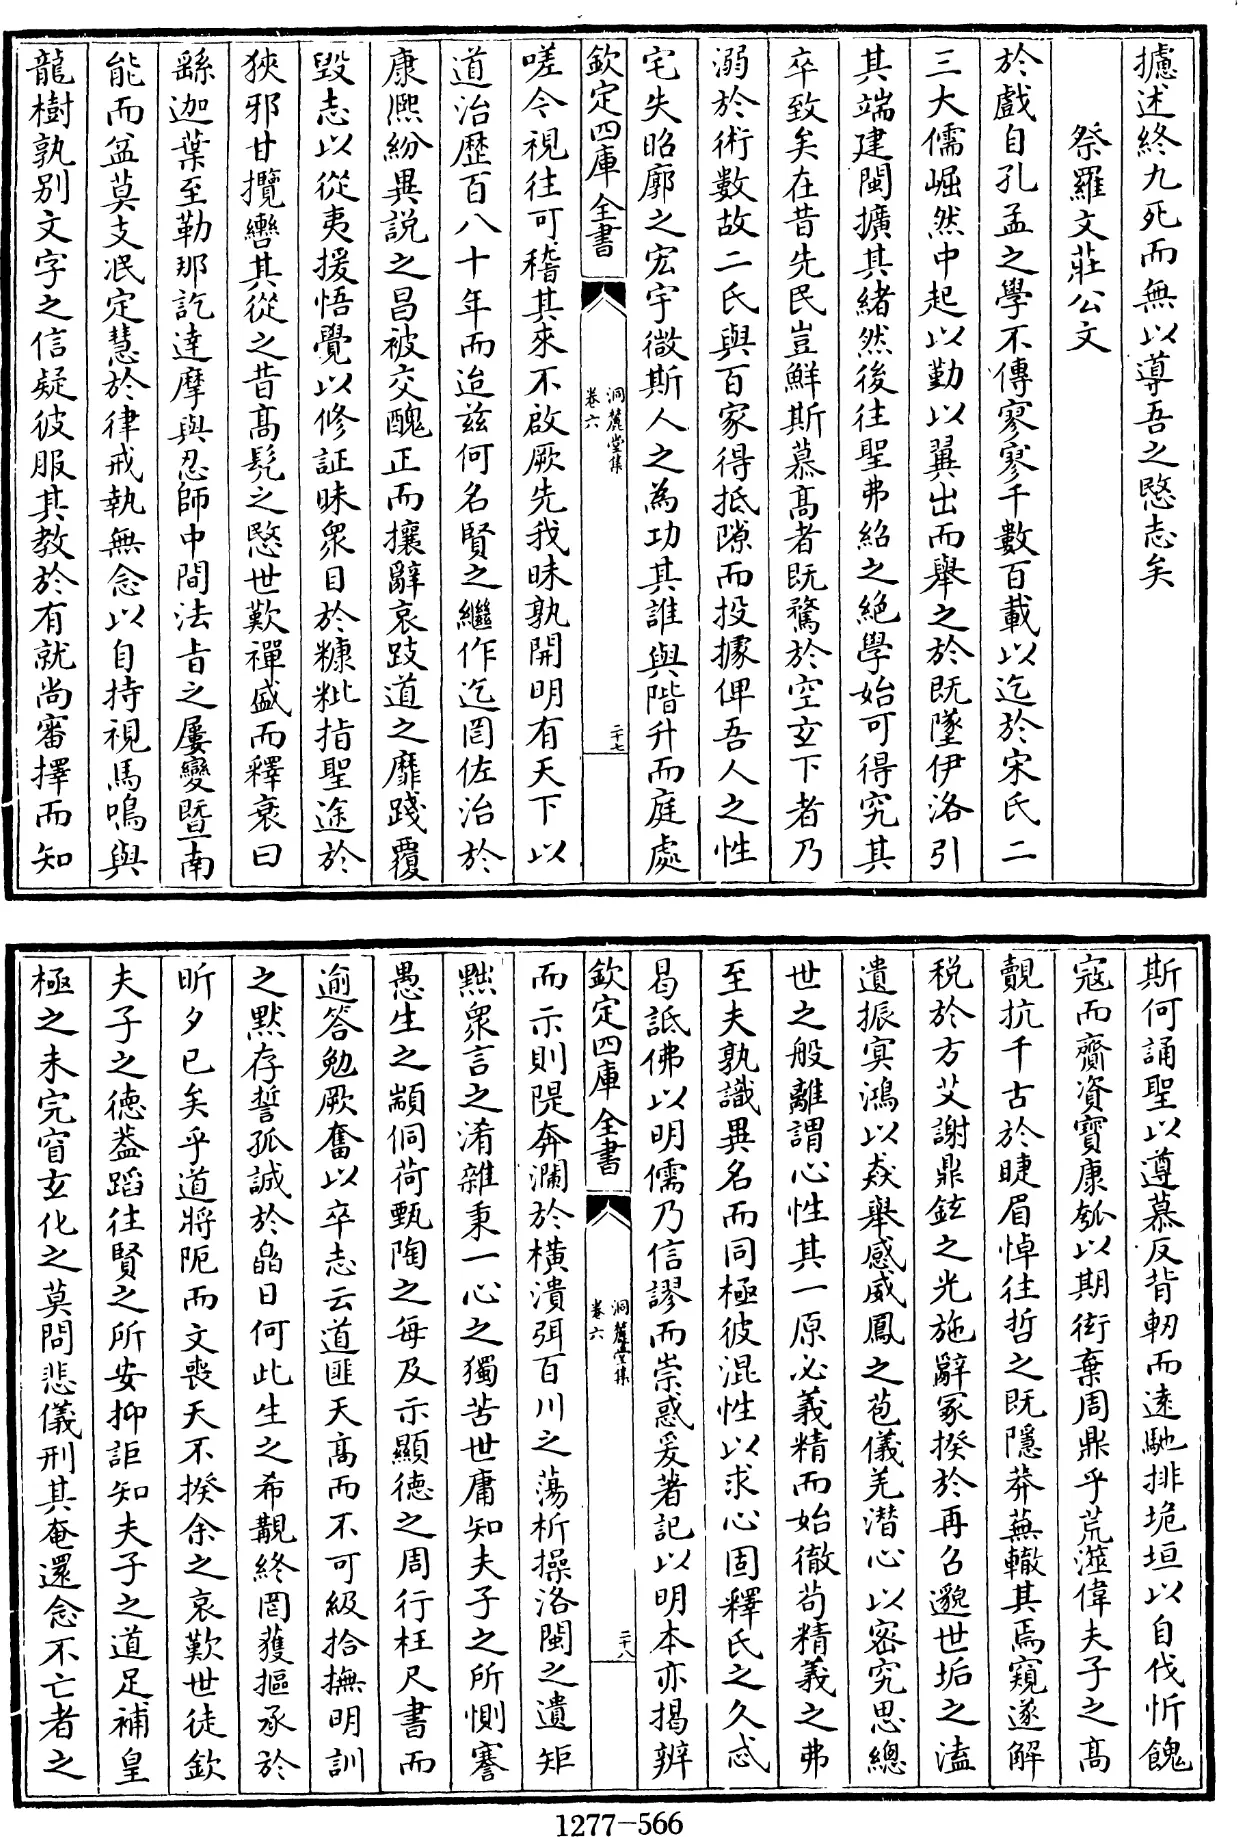 攄述終九死而無以導吾之愍志矣
祭羅文莊公文
於戲自孔孟之學不傳寥寥千數百載以迄於宋氏二
三大儒崛然中起以勤以翼出而舉之於既墜伊洛引
其端建閩擴其緒然後往聖弗紹之絶學始可得究其
卒致矣在昔先民豈鮮斯慕高者既騖於空玄下者乃
溺於術數故二氏與百家得抵隙而投據俾吾人之性
宅失昭廓之宏宇微斯人之為功其誰與階升而庭處
欽定四庫全書
洞麓堂集
卷六
二十七
嗟今視往可稽其來不啟厥先我昧孰開明有天下以
道治歷百八十年而迨兹何名賢之繼作迄罔佐治於
康熈紛異説之昌被交醜正而攘辭哀跂道之靡踐覆
毁志以從夷援悟覺以修証昧衆目於糠粃指聖途於
狹邪甘攬轡其從之昔高髡之愍世歎禪盛而釋衰曰
繇迦葉至勒那訖達摩與忍師中間法㫖之屢變暨南
能而盆莫支泯定慧於律戒執無念以自持視馬鳴與
龍樹孰别文字之信疑彼服其教於有就尚審擇而知
斯何誦聖以遵慕反背軔而遠馳排垝垣以自伐忻餽
寇而齎資寳康瓠以期衒棄周鼎乎荒澨偉夫子之高
覿抗千古於睫眉悼往哲之既隱莽蕪轍其焉窺遂解
税於方艾謝鼎鉉之光施辭冢揆於再召邈世垢之溘
遺振㝠鴻以猋舉感威鳳之苞儀羌潜心以密究思總
世之般離謂心性其一原必義精而始徹茍精義之弗
至夫孰識異名而同極彼混性以求心固釋氏之久忒
曷詆佛以明儒乃信謬而崇惑爰著記以明本亦揭辨
欽定四庫全書
洞麓堂集
卷六
二十八
而示則隄奔瀾於横潰弭百川之蕩析操洛閩之遺矩
黜衆言之淆雜秉一心之獨苦世庸知夫子之所惻謇
愚生之顓侗荷甄陶之每及示顯徳之周行枉尺書而
逾答勉厥奮以卒志云道匪天高而不可級拾撫明訓
之黙存誓孤誠於皛日何此生之希覯終罔獲摳承於
昕夕已矣乎道將阨而文喪天不揆余之哀歎世徒欽
夫子之徳葢蹈往賢之所安抑詎知夫子之道足補皇
極之未完窅玄化之莫問悲儀刑其奄還念不亡者之
1277—566